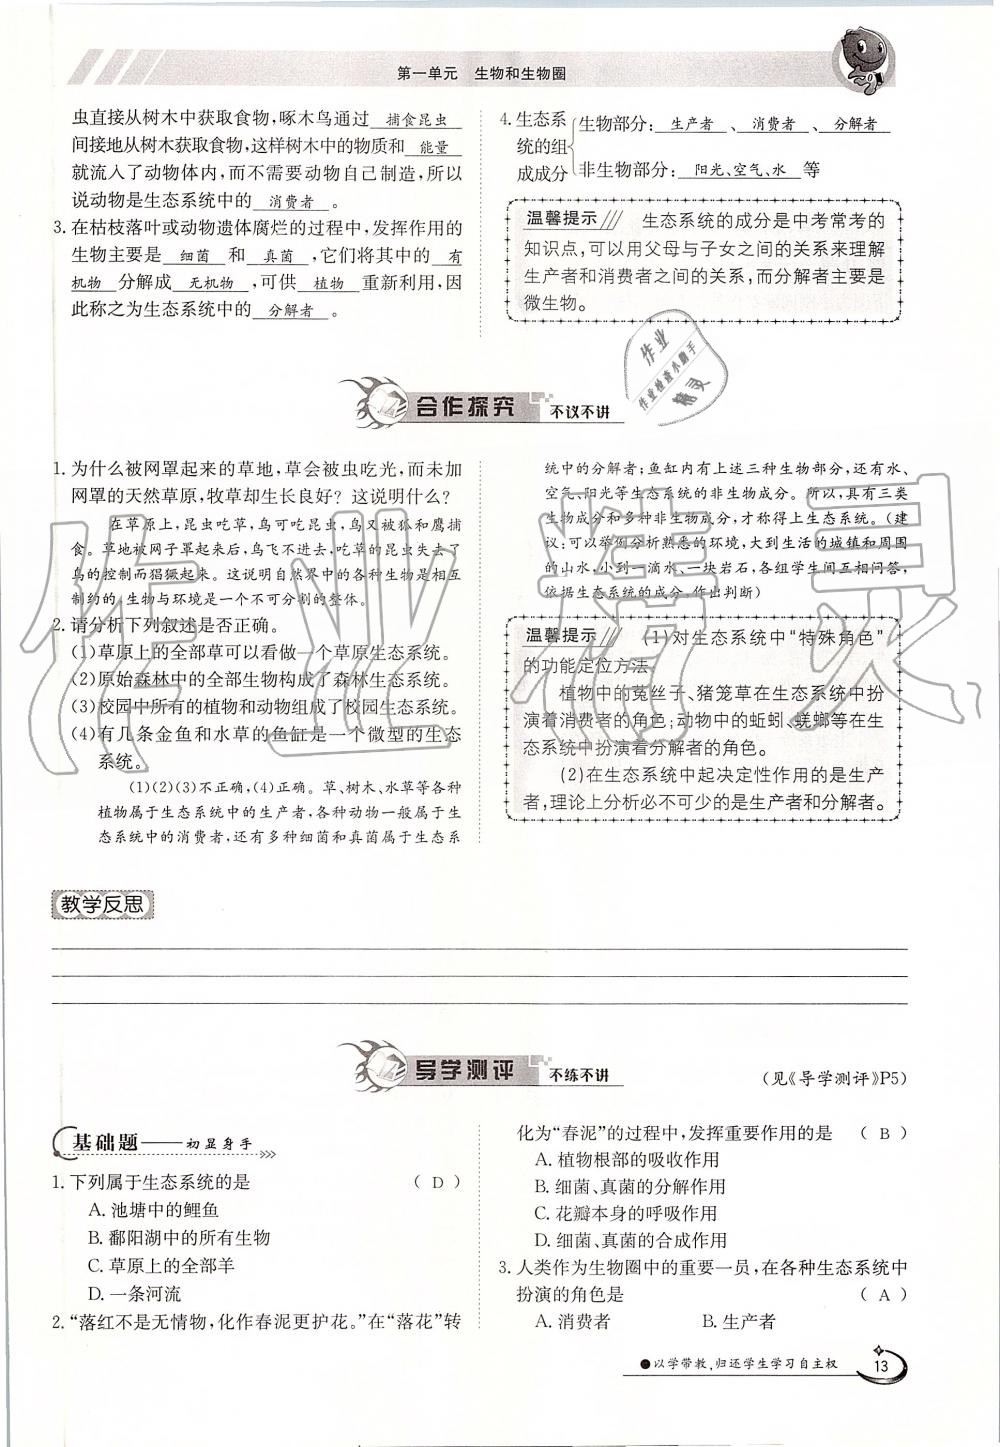 第一单元 生物和生物圈
虫直接从树木中获取食物,啄木鸟通过 捕食昆虫
间接地从树木获取食物,这样树木中的物质和 能量
就流入了动物体内,而不需要动物自己制造,所以
说动物是生态系统中的 消费者 。
3. 在枯枝落叶或动物遗体腐烂的过程中,发挥作用的
生物主要是 细菌 和 真菌 ,它们将其中的 有
机物 分解成 无机物 ,可供 植物 重新利用,因
此称之为生态系统中的 分解者 。
4. 生态系
统的组
成成分
生物部分: 生产者 、 消费者 、 分解者
非生物部分: 阳光、空气、水 等
温馨提示 生态系统的成分是中考常考的
知识点,可以用父母与子女之间的关系来理解
生产者和消费者之间的关系,而分解者主要是
微生物。
作业
作业检查小助手
精灵
合作探究 不议不讲
1. 为什么被网罩起来的草地,草会被虫吃光,而未加
网罩的天然草原,牧草却生长良好?这说明什么?
在草原上,昆虫吃草,鸟可吃昆虫,鸟又被狐和鹰捕
食。草地被网子罩起来后,鸟飞不进去,吃草的昆虫失去了
鸟的控制而猖獗起来。这说明自然界中的各种生物是相互
制约的,生物与环境是一个不可分割的整体。
2. 请分析下列叙述是否正确。
(1)草原上的全部草可以看做一个草原生态系统。
(2)原始森林中的全部生物构成了森林生态系统。
(3)校园中所有的植物和动物组成了校园生态系统。
(4)有几条金鱼和水草的鱼缸是一个微型的生态
系统。
(1)(2)(3)不正确,(4)正确。草、树木、水草等各种
植物属于生态系统中的生产者,各种动物一般属于生
态系统中的消费者,还有多种细菌和真菌属于生态系
统中的分解者;鱼缸内有上述三种生物部分,还有水、
空气、阳光等生态系统的非生物成分。所以,具有三类
生物成分和多种非生物成分,才称得上生态系统。(建
议:可以举例分析熟悉的环境,大到生活的城镇和周围
的山水,小到一滴水、一块岩石,各组学生间互相问答,
依据生态系统的成分,作出判断)
温馨提示 (1)对生态系统中“特殊角色”
的功能定位方法
植物中的菟丝子、猪笼草在生态系统中扮
演着消费者的角色;动物中的蚯蚓、蜣螂等在生
态系统中扮演着分解者的角色。
(2)在生态系统中起决定性作用的是生产
者,理论上分析必不可少的是生产者和分解者。
作业精灵
教学反思
导学测评 不练不讲
(见《导学测评》P5)
基础题——初显身手
1. 下列属于生态系统的是 ( D )
A. 池塘中的鲤鱼
B. 鄱阳湖中的所有生物
C. 草原上的全部羊
D. 一条河流
2. “落红不是无情物,化作春泥更护花。”在“落花”转
化为“春泥”的过程中,发挥重要作用的是 ( B )
A. 植物根部的吸收作用
B. 细菌、真菌的分解作用
C. 花瓣本身的呼吸作用
D. 细菌、真菌的合成作用
3. 人类作为生物圈中的重要一员,在各种生态系统中
扮演的角色是 ( A )
A. 消费者 B. 生产者
●以学带教,归还学生学习自主权
13